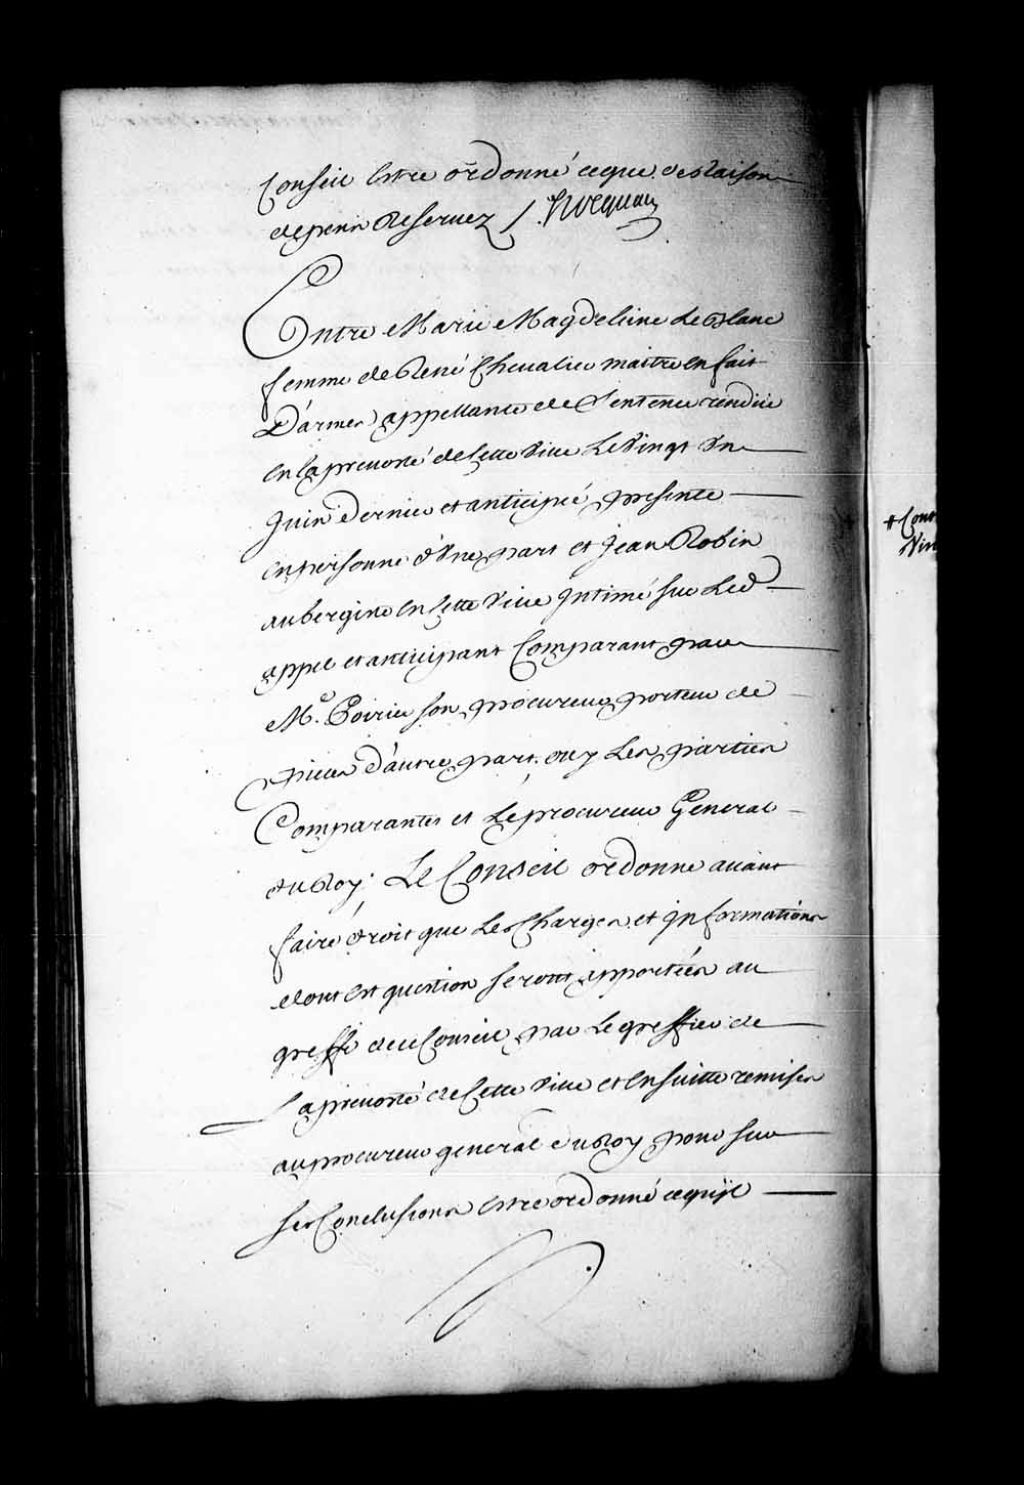 Conseil estre ordonné ceque de Raison
depens Reservez /.
Entre Marie Magdeleine Le Blanc
femme de René Chevalier maitre en fait
D'armes appellante de Sentence rendue
en la prevosté de cette Ville Le Vingt Un
Juin dernier et anticipée, presente
en personne d'Une part et Jean Robin
aubergiste en cette Ville Intimé sur Led
appel et anticipant Comparant par
Me. Poirier son procureur porteur de
pieces d'autre part, ouy Les parties
Comparantes et Le procureur General
du Roy. Le Conseil ordonne avant
faire droit que Les Charges et Informations
dont est question seront apportées au
greffe de ce Conseil par Le greffier de
La prevosté de cette Ville et ensuitte remises
au procureur general du Roy pour sur
ses Conclusions estre ordonné cequ'jl